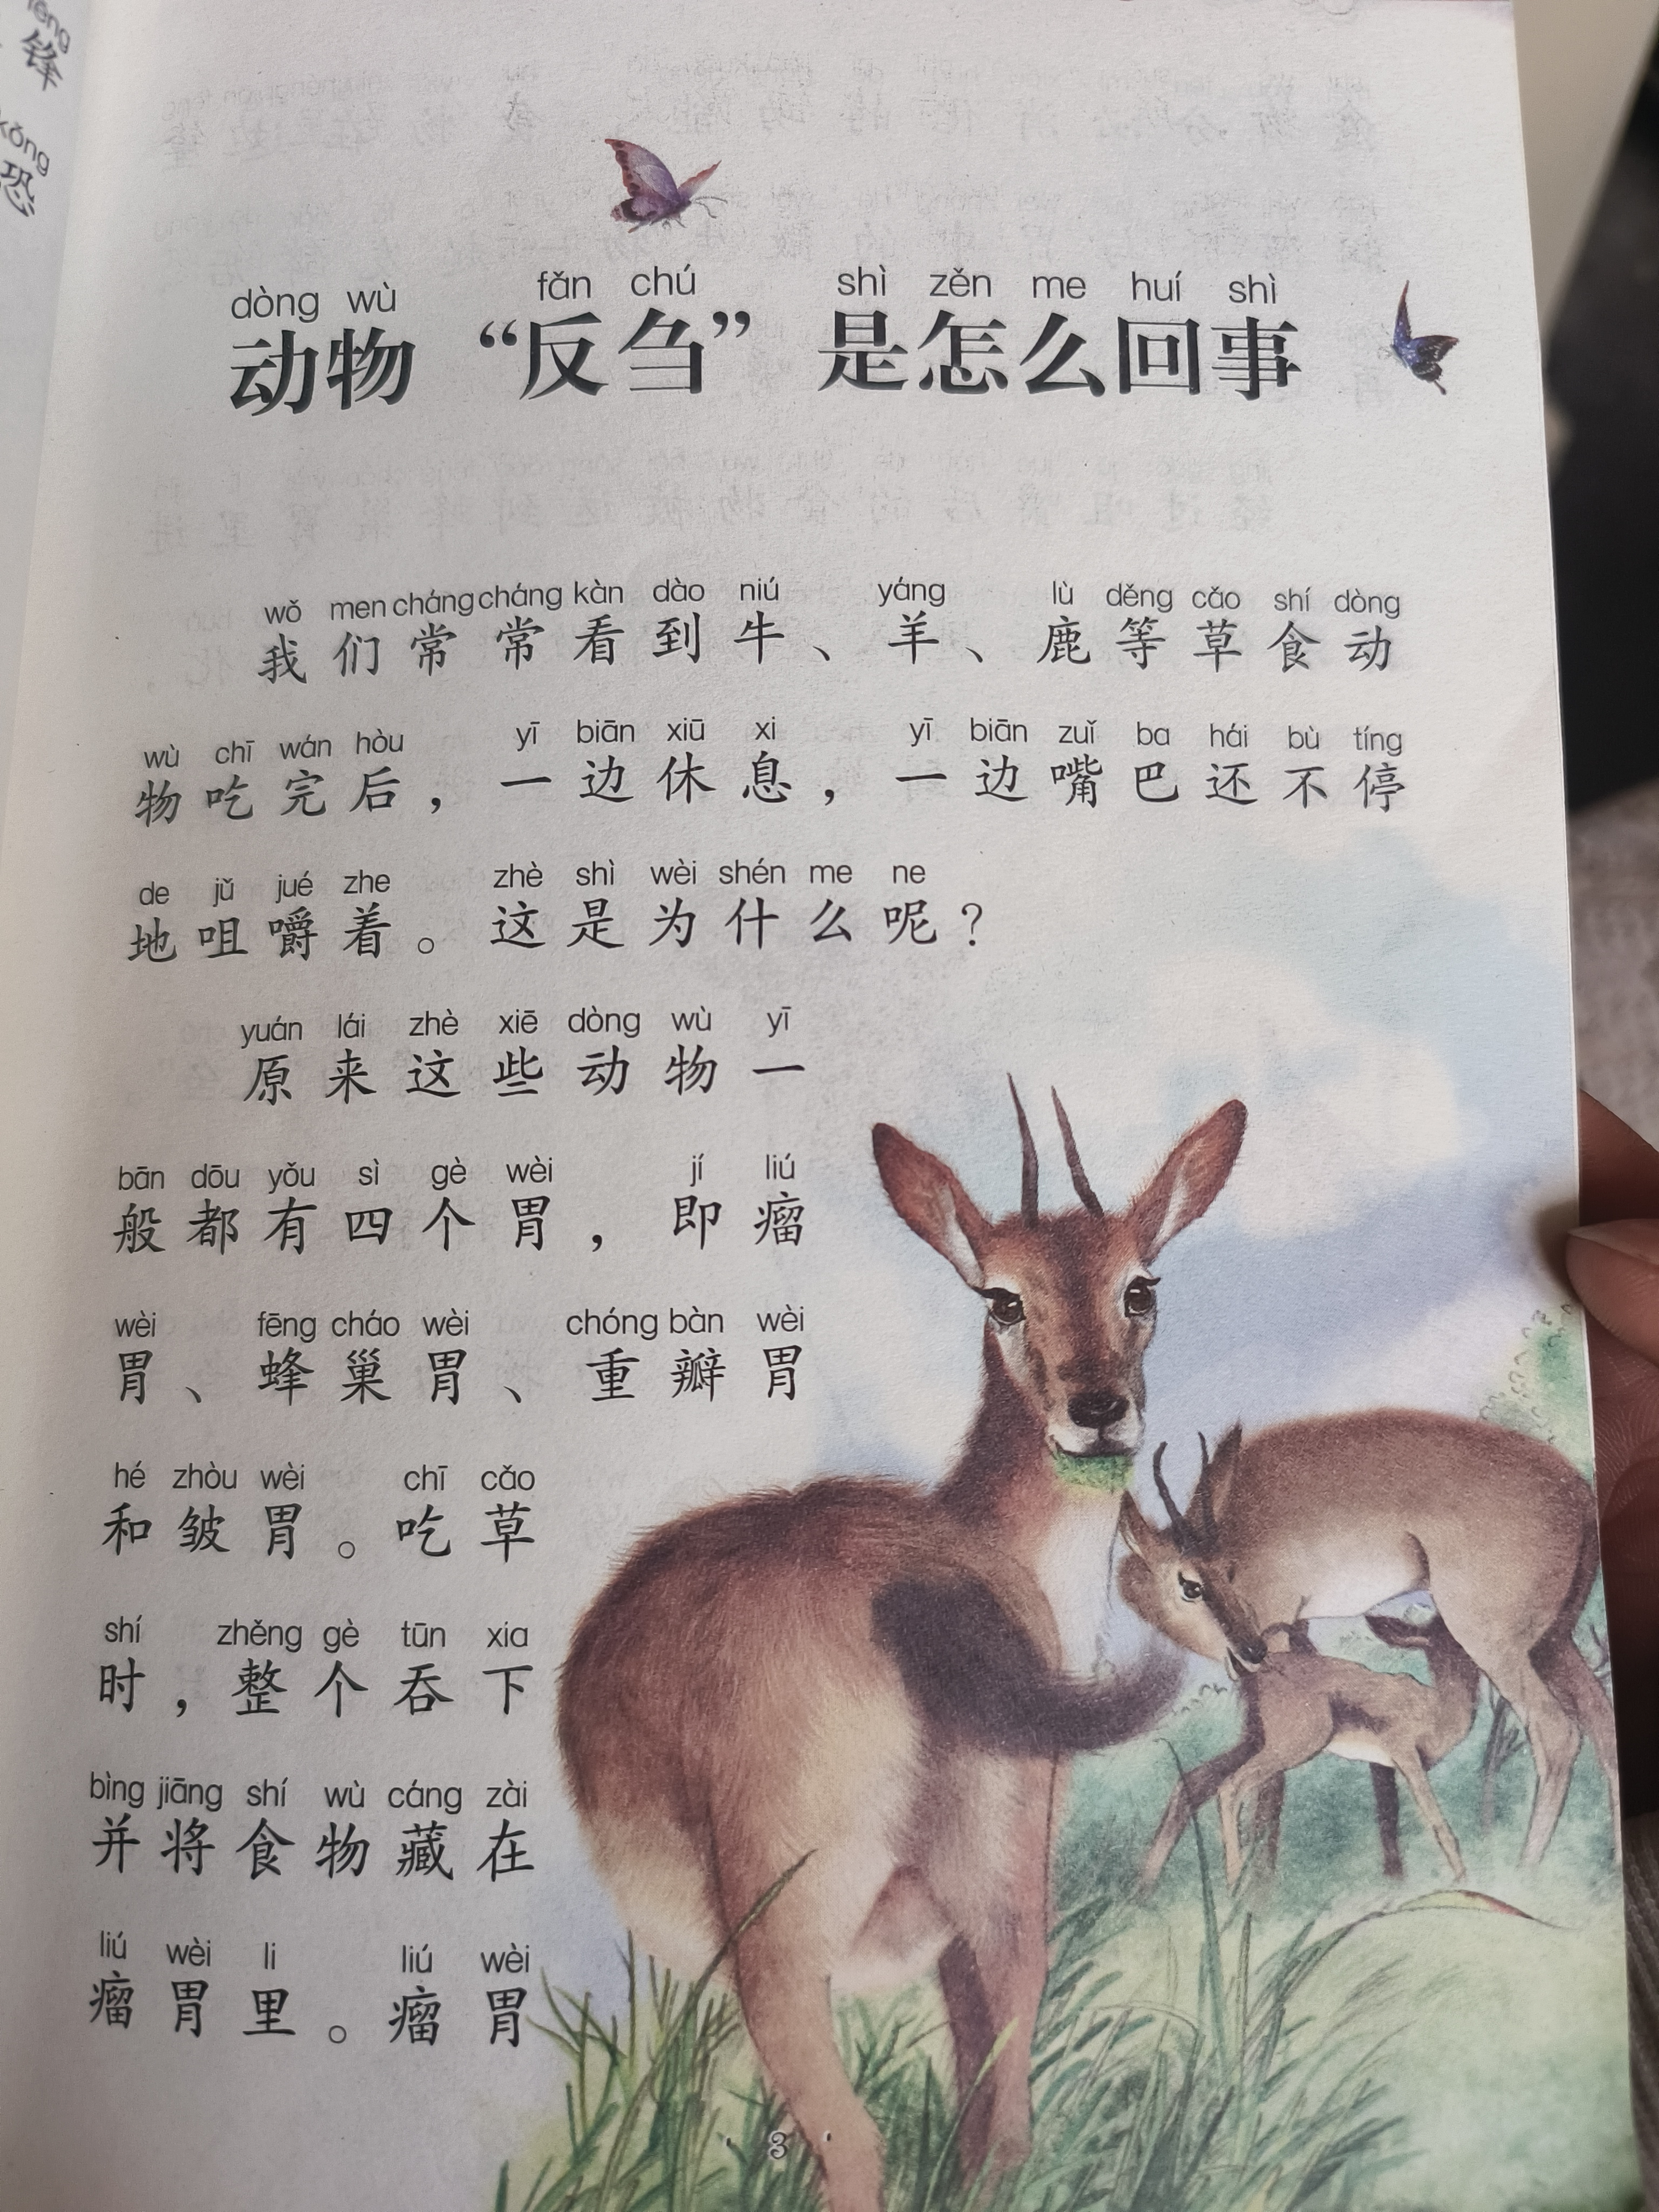 fēng
锋
kǒng
恐
dòng wù fǎn chú shì zěn me huí shì
动物“反刍”是怎么回事
wǒ men cháng cháng kàn dào niú yáng lù děng cǎo shí dòng
我们常常看到牛、羊、鹿等草食动
wù chī wán hòu yī biān xiū xi yī biān zuǐ ba hái bù tíng
物吃完后，一边休息，一边嘴巴还不停
de jǔ jué zhe zhè shì wèi shén me ne
地咀嚼着。这是为什么呢？
yuán lái zhè xiē dòng wù yī
原来这些动物一
bān dōu yǒu sì gè wèi jí liú
般都有四个胃，即瘤
wèi fēng cháo wèi chóng bàn wèi
胃、蜂巢胃、重瓣胃
hé zhòu wèi chī cǎo
和皱胃。吃草
shí zhěng gè tūn xia
时，整个吞下
bìng jiāng shí wù cáng zài
并将食物藏在
liú wèi li liú wèi
瘤胃里。瘤胃
3